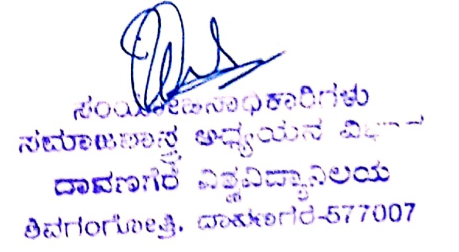 ಸಂಯೋಜನಾಧಿಕಾರಿಗಳು
ಸಮಾಜಶಾಸ್ತ್ರ ಅಧ್ಯಯನ
ದಾವಣಗೆರೆ ವಿಶ್ವವಿದ್ಯಾನಿಲಯ
ಶಿವಗಂಗೋತ್ರಿ, ದಾವಣಗೆರೆ-577007